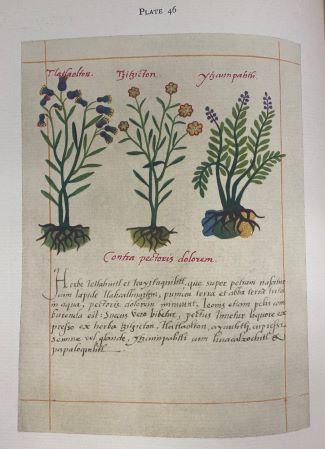 PLATE 46
Tlatlaolton. Tzitzicton. Yztauhpahtli.
Contra pectoris dolorem.
Herbe tetlahuitl et teoyztaquilitl, que super petram nascitur
cum lapide tlacalhuatzin, pumice terra et alba terra trita
in aqua, pectoris dolorem minuunt. leonis etiam pelis com
burenda est. Succus vero bibetur, pectus linietur liquore ex
presso ex herba tzitzicton, tlatlaolton, ayauhtli, cupressi
semine vel glande, yztauhpahtli cum huacalxochitl &
papaloquilitl.